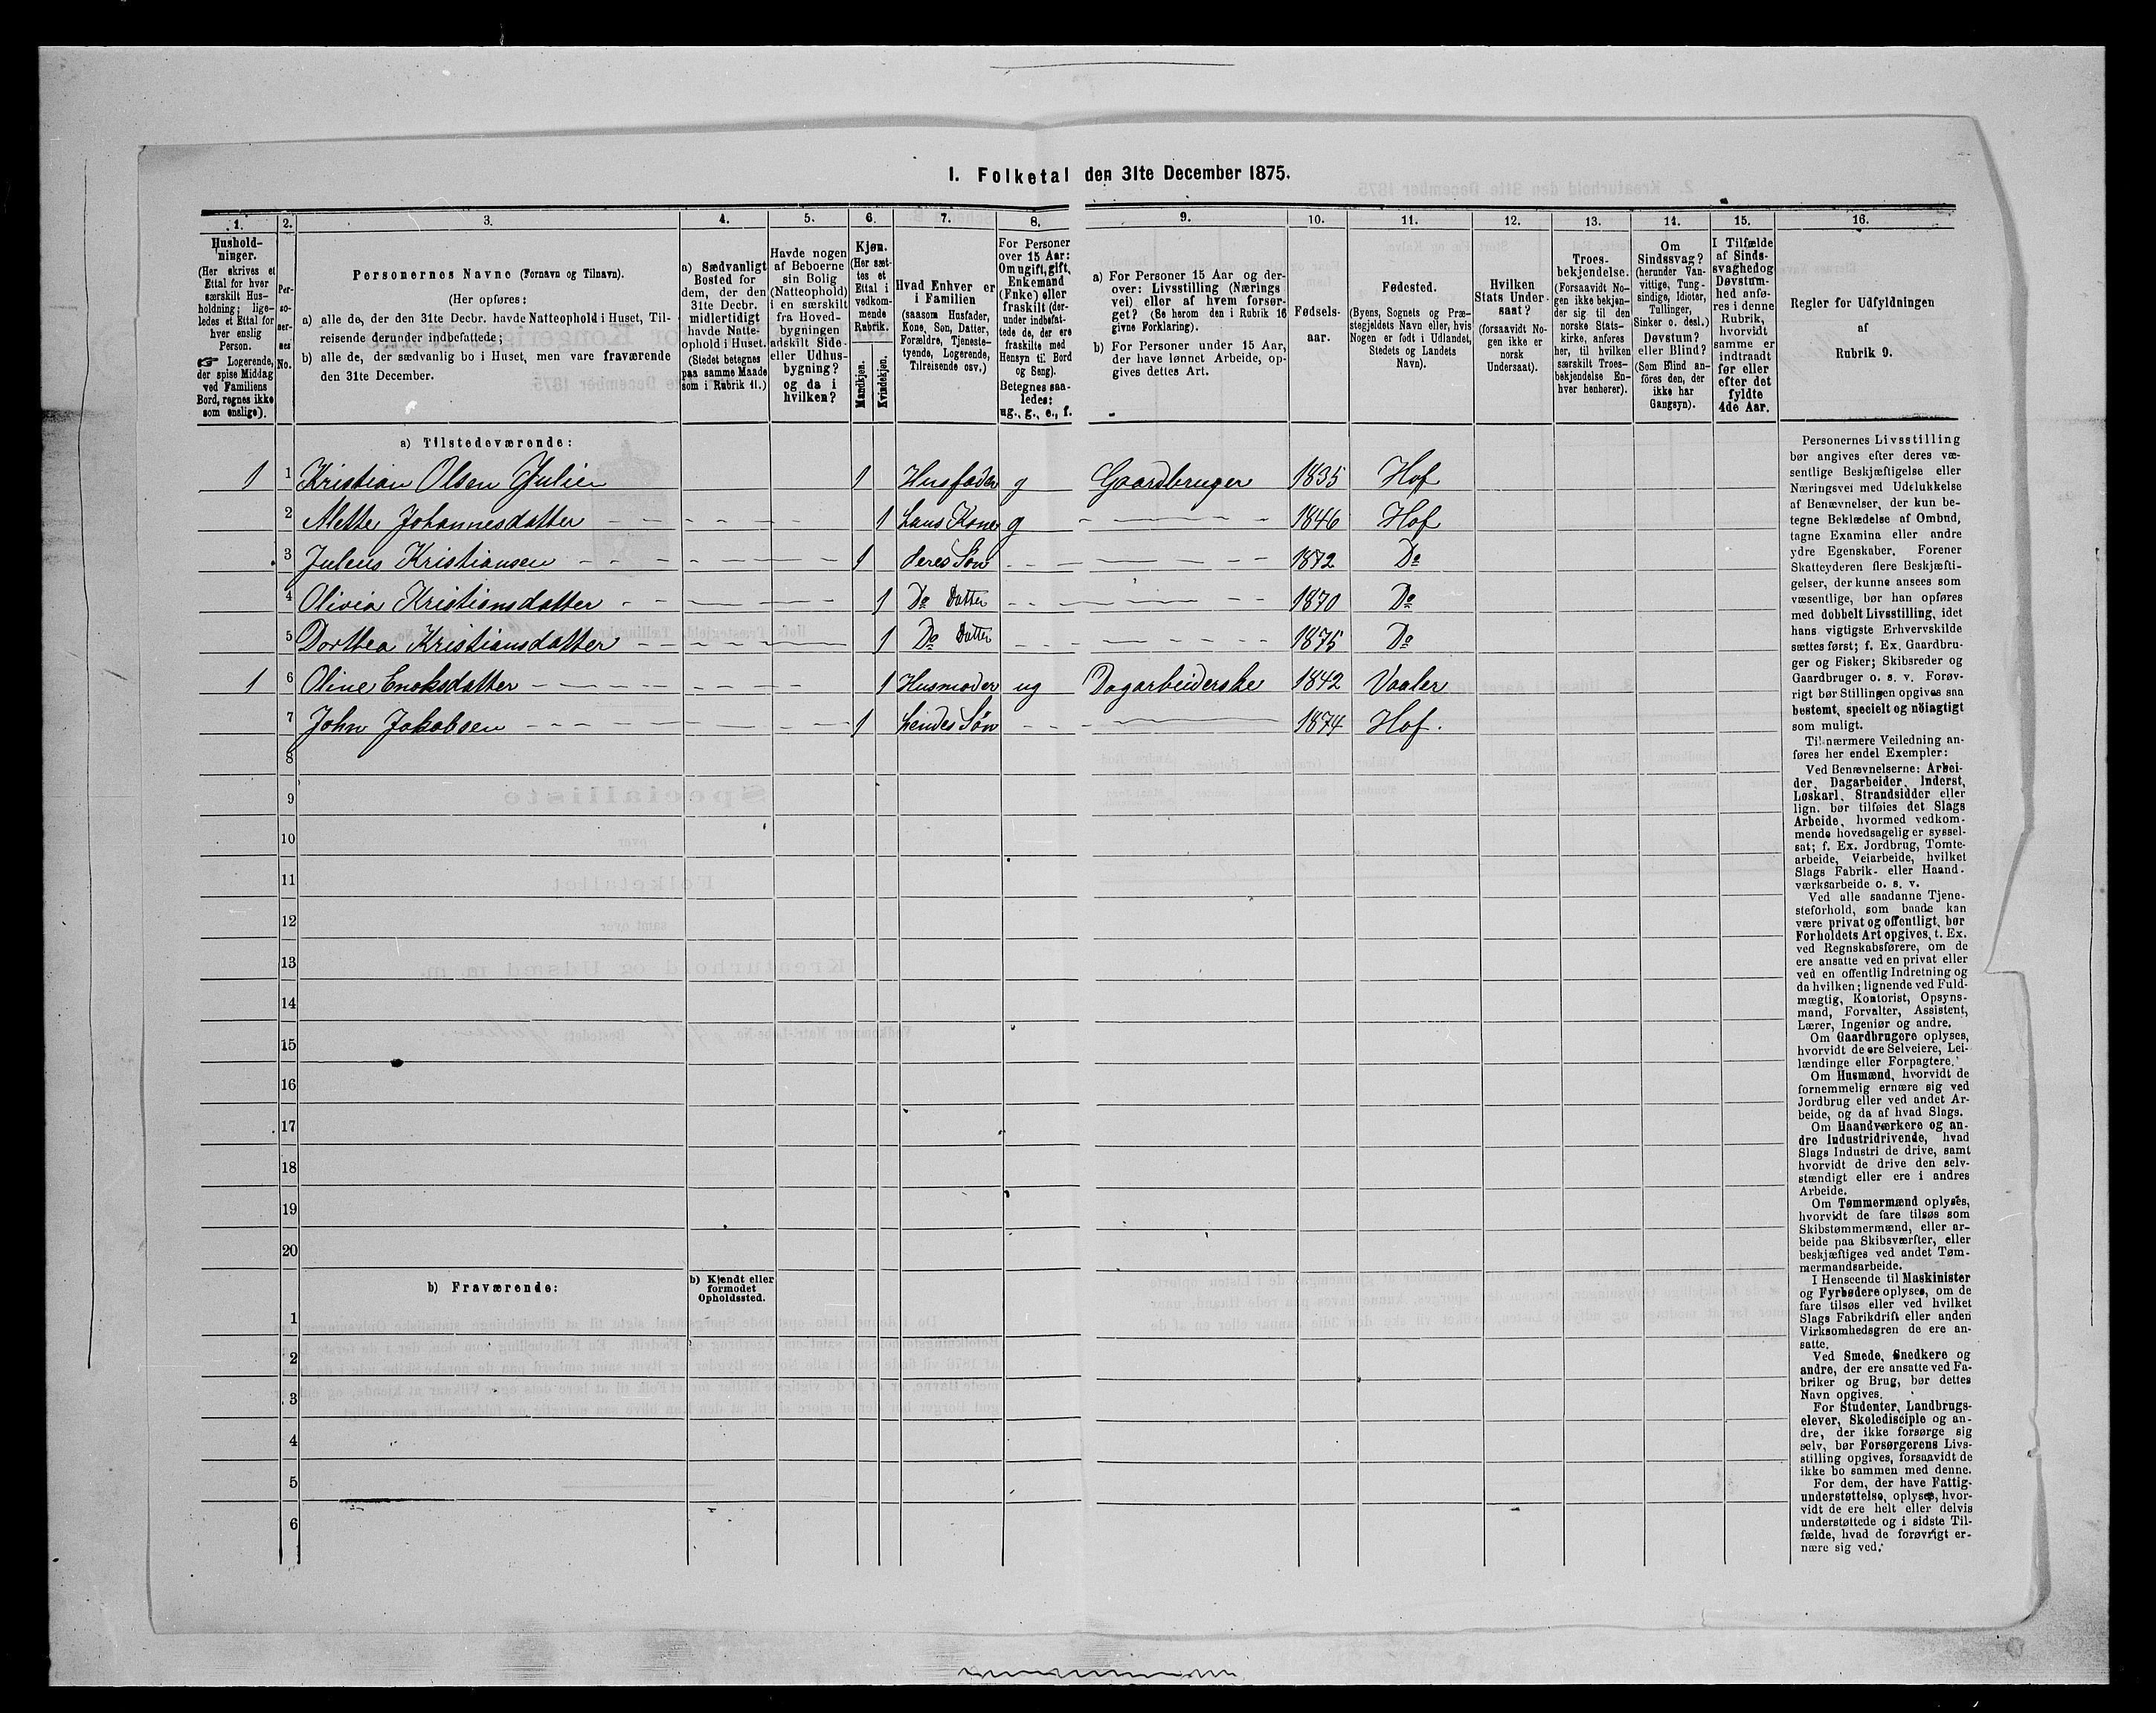 I. Folketal den 31te December 1875.
1. 2. 3. 4. 5. 6. 7. 8. 9. 10. 11. 12. 13. 14. 15. 16.
Hushold-
ninger.
(Her skrives et
Ettal for hver
særskilt Hus-
holdning; lige-
ledes et Ettal for
hver enslig
Person.
☞ Logerende,
der spise Middag
ved Familiens
Bord, regnes ikke
som enslige).
Per-
so-
ner-
nes
No.
Personernes Navne (Fornavn og Tilnavn).
(Her opføres:
a) alle de, der den 31te Decbr. havde Natteophold i Huset, Til-
reisende derunder indbefattede;
b) alle de, der sædvanlig bo i Huset, men vare fraværende
den 31te December.
a) Sædvanligt
Bosted for
dem, der den
31te Decbr.
midlertidigt
havde Natte-
ophold i Huset.
(Stedet betegnes
paa samme Maade
som i Rubrik 11.)
Havde nogen
af Beboerne
sin Bolig
(Natteophold)
i en særskilt
fra Hoved-
bygningen
adskilt Side-
eller Udhus-
bygning?
og da i
hvilken?
Kjøn.
(Her sæt-
tes et
Ettal i
vedkom-
mende
Rubrik.
Mandkjøn.
Kvindekjøn.
Hvad Enhver er
i Familien
(saasom Husfader,
Kone, Søn, Datter,
Forældre, Tjeneste-
tyende, Logerende,
Tilreisende osv.)
For Personer
over 15 Aar:
Om ugift, gift,
Enkemand
(Enke) eller
fraskilt (der-
under indbefat-
tede de, der ere
fraskilte med
Hensyn til Bord
og Seng).
Betegnes saa-
ledes:
ug., g., e., f.
a) For Personer 15 Aar og der-
over: Livsstilling (Nærings-
vei) eller af hvem forsør-
get? (Se herom den i Rubrik 16
givne Forklaring).
b) For Personer under 15 Aar,
der have lønnet Arbeide, op-
gives dettes Art.
Fødsels-
aar.
Fødested.
(Byens, Sognets og Præ-
stegjeldets Navn eller, hvis
Nogen er født i Udlandet,
Stedets og Landets
Navn).
Hvilken
Stats Under-
saat?
(forsaavidt No-
gen ikke er
norsk
Undersaat).
Troes-
bekjendelse.
(Forsaavidt No-
gen ikke bekjen-
der sig til den
norske Stats-
kirke, anføres
her, til hvilken
særskilt Troes-
bekjendelse En-
hver henhører).
Om
Sindssvag?
(herunder Van-
vittige, Tung-
sindige, Idioter,
Tullinger,
Sinker o. desl.)
Døvstum?
eller Blind?
(Som Blind an-
føres den, der
ikke har
Gangsyn).
I Tilfælde
af Sinds-
svaghed og
Døvstum-
hed anfø-
res i denne
Rubrik,
hvorvidt
samme er
indtraadt
før eller
efter det
fyldte
4de Aar.
Regler for Udfyldningen
af
Rubrik 9.
a) Tilstedeværende:
1 1 Kristian Olsen Julien 1 Husfader g Gaardbruger 1835 Hof
2 Mette Johannesdatter 1 hans Kone g 1846 Hof
3 Julius Kristiansen 1 deres Søn 1872 Do
4 Olivia Kristiansdatter 1 Do Datter 1870 Do
5 Dorthea Kristiansdatter 1 Do Datter 1875 Do
1 6 Oline Enoksdatter 1 Husmoder ug Dagarbeiderske 1842 Vaaler
7 John Jakobsen 1 hendes Søn 1874 Hof.
8
9
10
11
12
13
14
15
16
17
18
19
20
b) Fraværende:
b) Kjendt eller
formodet
Opholdssted.
1
2
3
4
5
6
Personernes Livsstilling
bør angives efter deres væ-
sentlige Beskjæftigelse eller
Næringsvei med Udelukkelse
af Benævnelser, der kun be-
tegne Beklædelse af Ombud,
tagne Examina eller andre
ydre Egenskaber. Forener
Skatteyderen flere Beskjæfti-
gelser, der kunne ansees som
væsentlige, bør han opføres
med dobbelt Livsstilling, idet
hans vigtigste Erhvervskilde
sættes først; f. Ex. Gaardbru-
ger og Fisker; Skibsreder og
Gaardbruger o. s. v. Forøv-
rigt bør Stillingen opgives saa
bestemt, specielt og nöiagtigt
som muligt.
Til nærmere Veiledning an-
føres her endel Exempler:
Ved Benævnelserne: Arbei-
der, Dagarbeider, Inderst,
Løskarl, Strandsidder eller
lign. bør tilføies det Slags
Arbeide, hvormed vedkom-
mende hovedsagelig er syssel-
sat; f. Ex. Jordbrug, Tomte-
arbeide, Veiarbeide, hvilket
Slags Fabrik- eller Haand-
værksarbeide o. s. v.
Ved alle saadanne Tjene-
steforhold, som baade kan
være privat og offentligt, bør
Forholdets Art opgives, t. Ex.
ved Regnskabsførere, om de
ere ansatte ved en privat eller
ved en offentlig Indretning og
da hvilken; lignende ved Fuld-
mægtig, Kontorist, Opsyns-
mand, Forvalter, Assistent,
Lærer, Ingeniør og andre.
Om Gaardbrugere oplyses,
hvorvidt de ere Selveiere, Lei-
lændinge eller Forpagtere.
Om Husmænd, hvorvidt de
fornemmelig ernære sig ved
Jordbrug eller ved andet Ar-
beide, og da af hvad Slags.
Om Haandværkere og an-
dre Industridrivende, hvad
Slags Industri de drive, samt
hvorvidt de drive den selv-
stændigt eller ere i andres
Arbeide.
Om Tømmermænd oplyses,
hvorvidt de fare tilsøs som
Skibstømmermænd, eller ar-
beide paa Skibsværfter, eller
beskjæftiges ved andet Tøm-
mermandsarbeide.
I Henseende til Maskinister
og Fyrbødere oplyses, om de
fare tilsøs eller ved hvilket
Slags Fabrikdrift eller anden
Virksomhedsgren de ere an-
satte.
Ved Smede, Snedkere og
andre, der ere ansatte ved Fa-
briker og Brug, bør dettes
Navn opgives.
For Studenter, Landbrugs-
elever, Skoledisciple og an-
dre, der ikke forsørge sig
selv, bør Forsørgerens Livs-
stilling opgives, forsaavidt de
ikke bo sammen med denne.
For dem, der have Fattig-
understøttelse, oplyses, hvor-
vidt de ere helt eller delvis
understøttede og i sidste Til-
fælde, hvad de forøvrigt er-
nære sig ved.